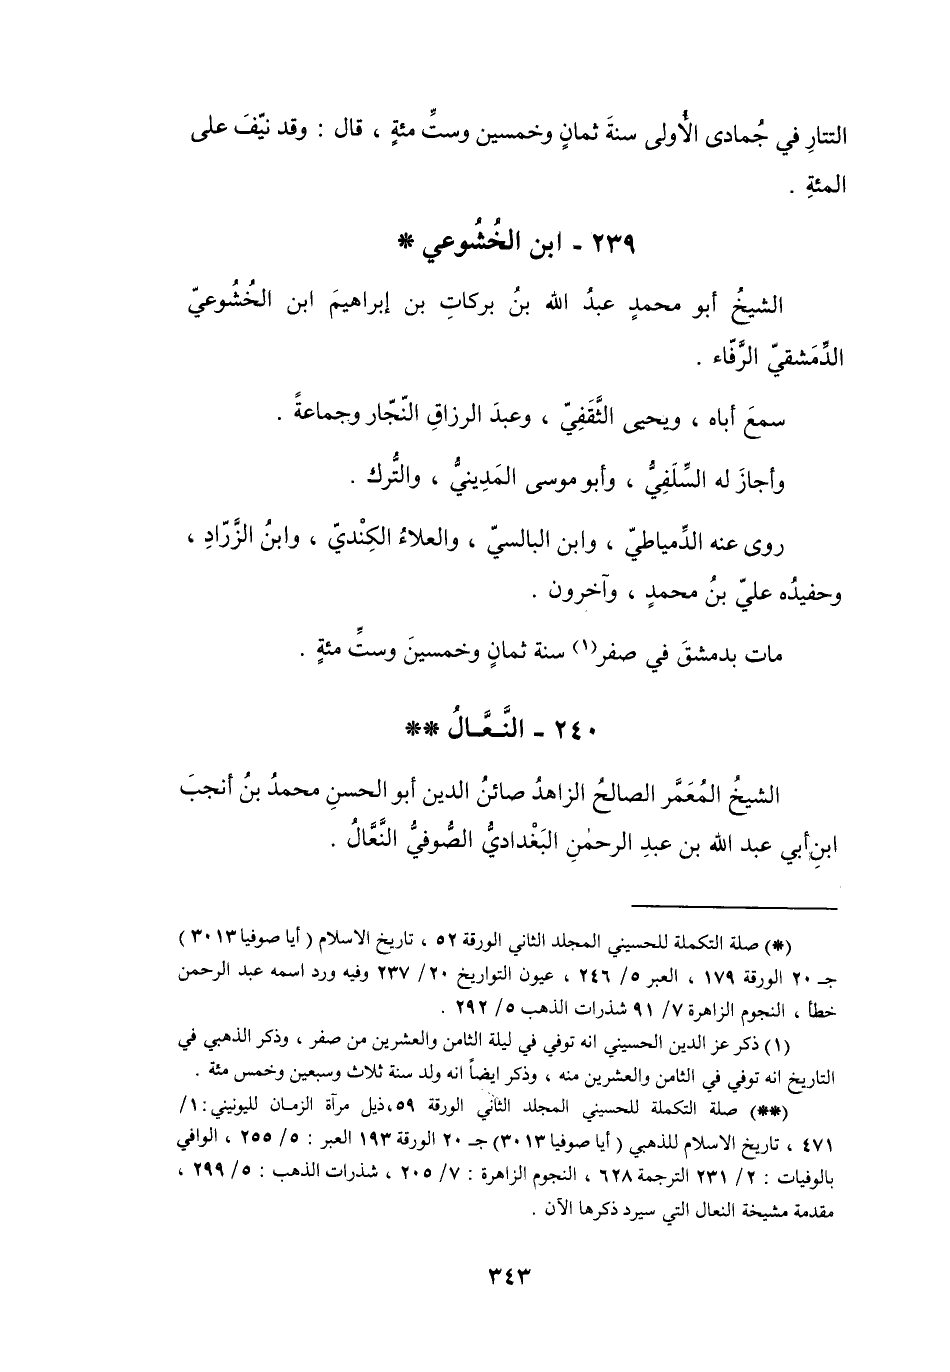 التتارِ في جُمادى الأُولى سنةَ ثمانٍ وخمسين وستِّ مئةٍ ، قال : وقد نيّفَ على
المئةِ .
٢٣٩ - ابن الخُشُوعي *
الشيخُ أبو محمدٍ عبدُ الله بنُ بركاتِ بن إبراهيمَ ابن الخُشُوعيّ
الدِّمَشقيّ الرَّفّاء .
سمعَ أباه ، ويحيى الثَّقَفِيّ ، وعبدَ الرزاقِ النّجّار وجماعةً .
وأجازَ له السِّلَفِيُّ ، وأبو موسى المَدِينيُّ ، والتُّرك .
روى عنه الدِّمياطيّ ، وابن البالسيّ ، والعلاءُ الكِنْديّ ، وابنُ الزَّرّادِ ،
وحفيدُه عليّ بنُ محمدٍ ، وآخرون .
مات بدمشقَ في صفر(١) سنة ثمانٍ وخمسينَ وستِّ مئةٍ .
٢٤٠ - النَّـعَّـالُ **
الشيخُ المُعَمَّر الصالحُ الزاهدُ صائنُ الدين أبو الحسنِ محمدُ بنُ أنجبَ
ابنِ أبي عبد الله بن عبدِ الرحمٰنِ البَغْداديُّ الصُّوفيُّ النَّعَّالُ .
(*) صلة التكملة للحسيني المجلد الثاني الورقة ٥٢ ، تاريخ الاسلام ( أيا صوفيا ٣٠١٣ )
جـ ٢٠ الورقة ١٧٩ ، العبر ٥/ ٢٤٦ ، عيون التواريخ ٢٠/ ٢٣٧ وفيه ورد اسمه عبد الرحمن
خطأ ، النجوم الزاهرة ٧/ ٩١ شذرات الذهب ٥/ ٢٩٢ .
(١) ذكر عز الدين الحسيني انه توفي في ليلة الثامن والعشرين من صفر ، وذكر الذهبي في
التاريخ انه توفي في الثامن والعشرين منه ، وذكر ايضاً انه ولد سنة ثلاث وسبعين وخمس مئة .
(**) صلة التكملة للحسيني المجلد الثاني الورقة ٥٩، ذيل مرآة الزمـان لليونيني : ١/
٤٧١ ، تاريخ الاسلام للذهبي ( أيا صوفيا ٣٠١٣ ) جـ ٢٠ الورقة ١٩٣ العبر : ٥/ ٢٥٥ ، الوافي
بالوفيات : ٢/ ٢٣١ الترجمة ٦٢٨ ، النجوم الزاهرة : ٧/ ٢٠٥ ، شذرات الذهب : ٥/ ٢٩٩ ،
مقدمة مشيخة النعال التي سيرد ذكرها الآن .
٣٤٣